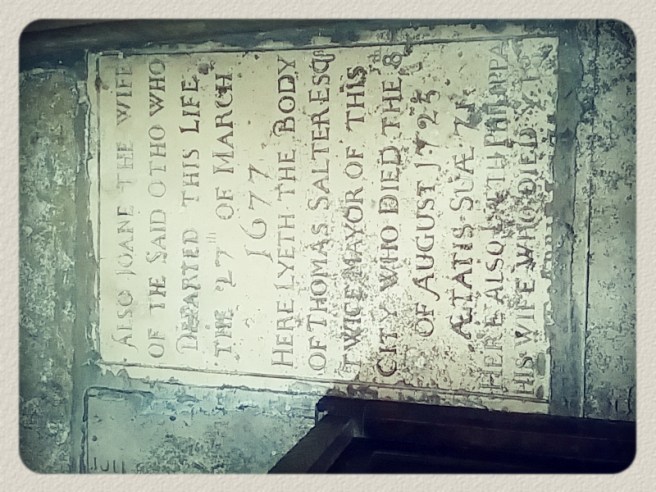 ALSO JOANE THE WIFE
OF THE SAID OTHO WHO
DEPARTED THIS LIFE
THE 27TH OF MARCH
1677
HERE LYETH THE BODY
OF THOMAS SALTER ESQ
TWICE MAYOR OF THIS
CITY WHO DIED THE 8TH
OF AUGUST 1723
ÆTATIS SUÆ 71
HERE ALSO LYETH PHILIPPA
HIS WIFE WHO DIED